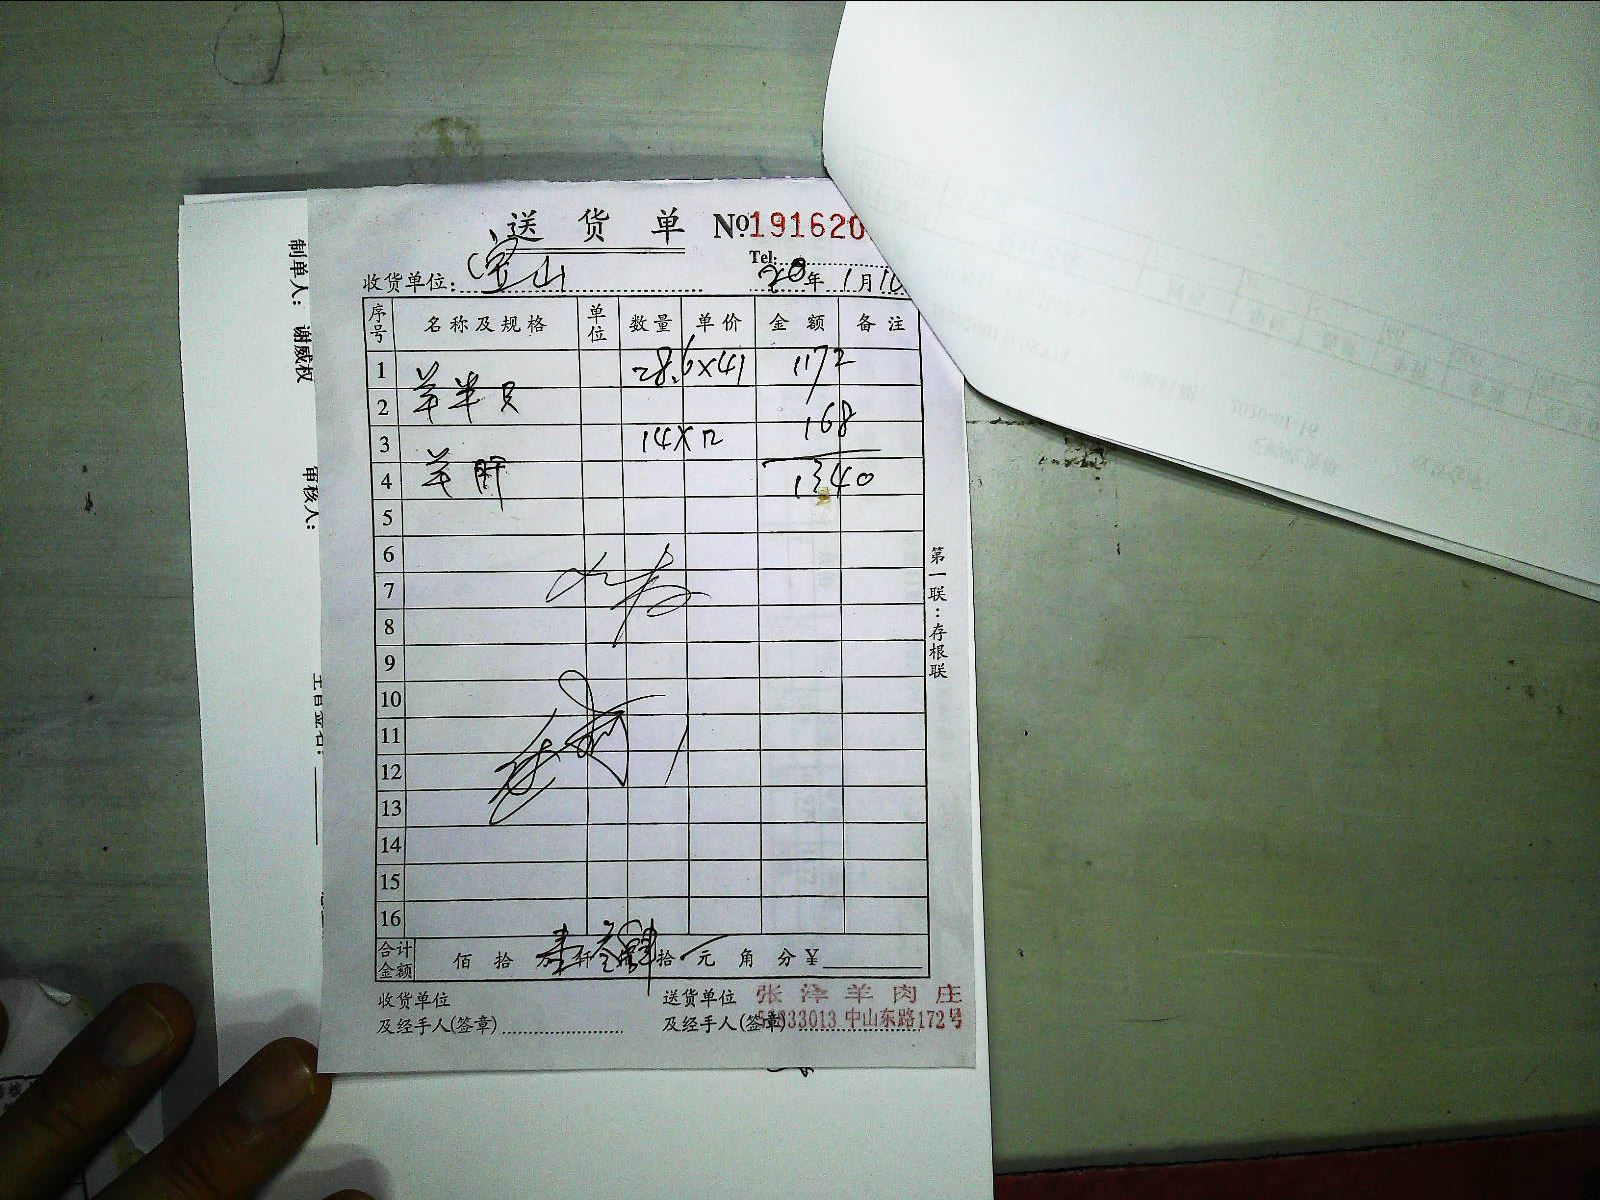 送货单 №191620
Tel:
收货单位: 宝山 20年1月10
序号 名称及规格 单位 数量 单价 金额 备注
1 28.6×41 1172
2 羊半只 168
3 14×12
4 羊肝 1340
5
6
7
8
9
10
11
12
13
14
15
16
合计金额 佰 拾 万 壹仟 叁佰 肆拾 元 角 分 ¥
收货单位 送货单位 张泽羊肉庄
及经手人(签章) 及经手人(签章) 33013 中山东路172号
第一联:存根联
制单人: 谢威权
审核人: